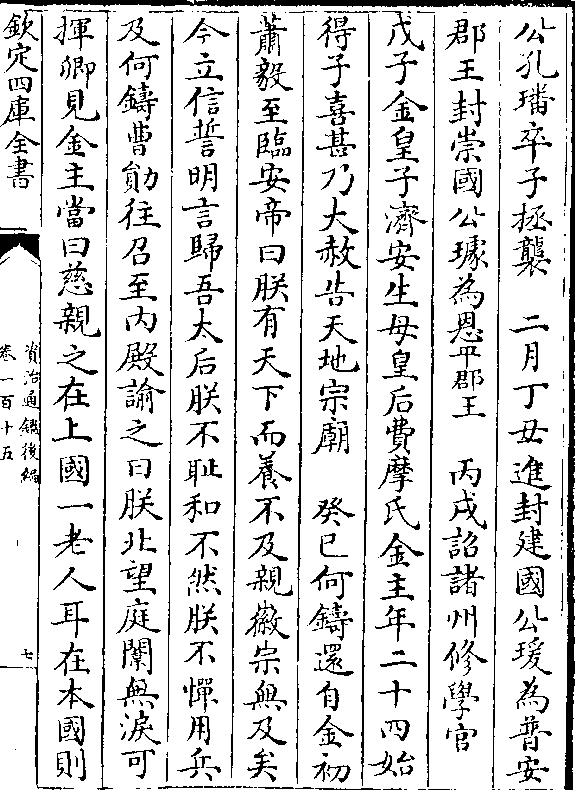 公孔璠卒子拯襲　二月丁丑進封建國公瑗為普安
郡王封崇國公璩為恩平郡王　丙戌詔諸州修學官
戊子金皇子濟安生母皇后費摩氏金主年二十四始
得子喜甚乃大赦告天地宗廟　癸巳何鑄還自金初
蕭毅至臨安帝曰朕有天下而養不及親徽宗無及矣
今立信誓明言歸吾太后朕不恥和不然朕不憚用兵
及何鑄曹勛往召至內殿諭之曰朕北望庭闈無淚可
揮卿見金主當曰慈親之在上國一老人耳在本國則
欽定四庫全書
資治通鑑後編
卷一百十五
七